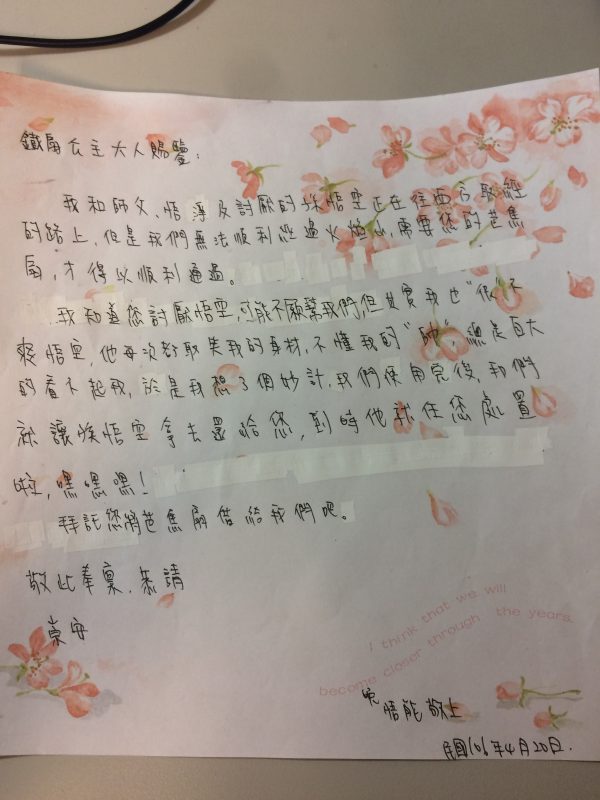 鐵扇公主大人賜鑒：
我和師父、悟淨及討厭的孫悟空正在往西方取經
的路上，但是我們無法順利經過火焰山，需要您的芭焦
扇，才得以順利通過。
我知道您討厭悟空，可能不願幫我們，但其實我也"很"不
爽悟空，他每次都取笑我的身材，不懂我的"帥"，總是自大
的看不起我，於是我想了個妙計，我們使用完後，我們
就讓孫悟空拿去還給您，到時他就任您處置
啦，嘿嘿嘿！
拜託您將芭焦扇借給我們吧。
敬此奉稟，恭請
崇安
I think that we will
become closer through the years.
悟能敬上
民國106年4月20日.